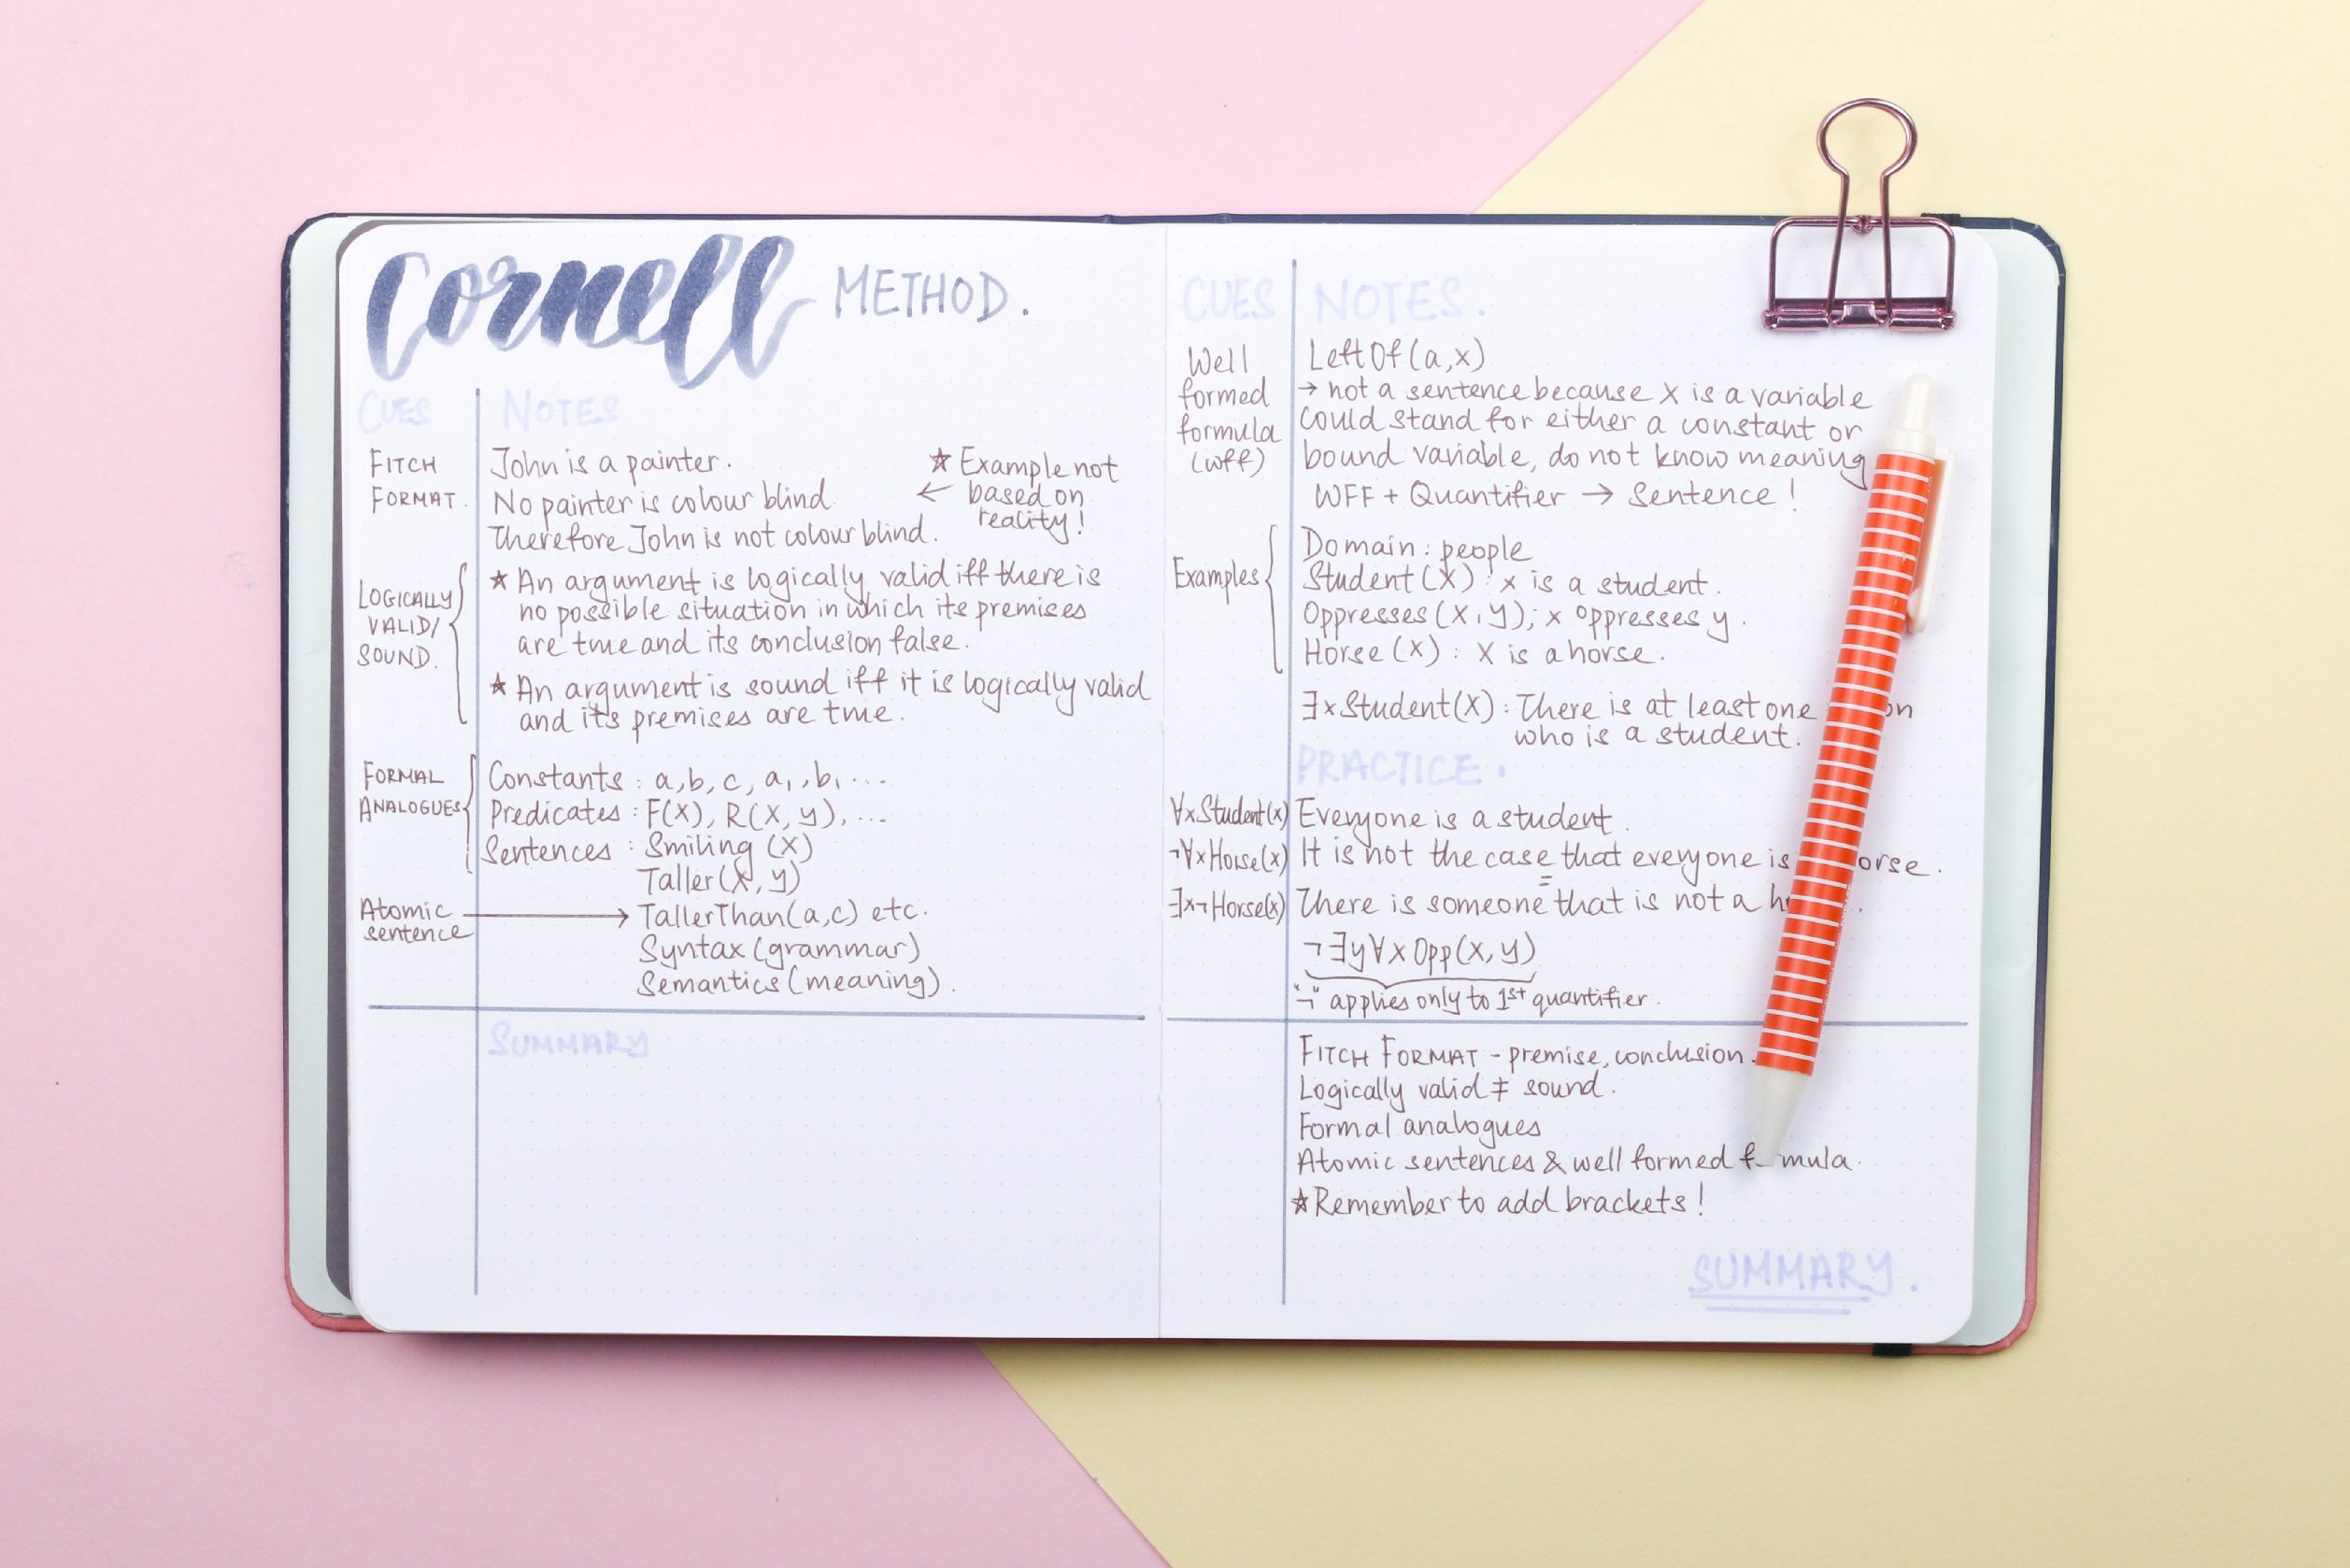 Cornell METHOD.
CUES NOTES
FITCH FORMAT.
John is a painter.
No painter is colour blind.
Therefore John is not colour blind.
★ Example not
← based on
reality!
LOGICALLY
VALID/
SOUND.
★ An argument is logically valid iff there is
no possible situation in which its premises
are true and its conclusion false.
★ An argument is sound iff it is logically valid
and its premises are true.
FORMAL
ANALOGUES
Constants : a, b, c, a₁, b₁ ...
Predicates : F(x), R(x, y), ...
Sentences : Smiling (x)
Taller(x, y)
Atomic
sentence
→ TallerThan(a,c) etc.
Syntax (grammar)
Semantics (meaning).
SUMMARY
CUES NOTES.
Well
formed
formula
(wff)
LeftOf(a,x)
→ not a sentence because x is a variable
could stand for either a constant or
bound variable, do not know meaning
WFF + Quantifier → Sentence!
Examples
Domain : people
Student(x) : x is a student.
Oppresses(x, y); x oppresses y.
Horse (x) : x is a horse.
∃xStudent(x) : There is at least one
who is a student.
PRACTICE.
∀xStudent(x) Everyone is a student.
¬∀xHorse(x) It is not the case that everyone is
=
∃x¬Horse(x) There is someone that is not a
¬∃y∀xOpp(x, y)
"¬" applies only to 1st quantifier.
FITCH FORMAT - premise, conclusion.
Logically valid ≠ sound.
Formal analogues
Atomic sentences & well formed
★ Remember to add brackets!
SUMMARY.